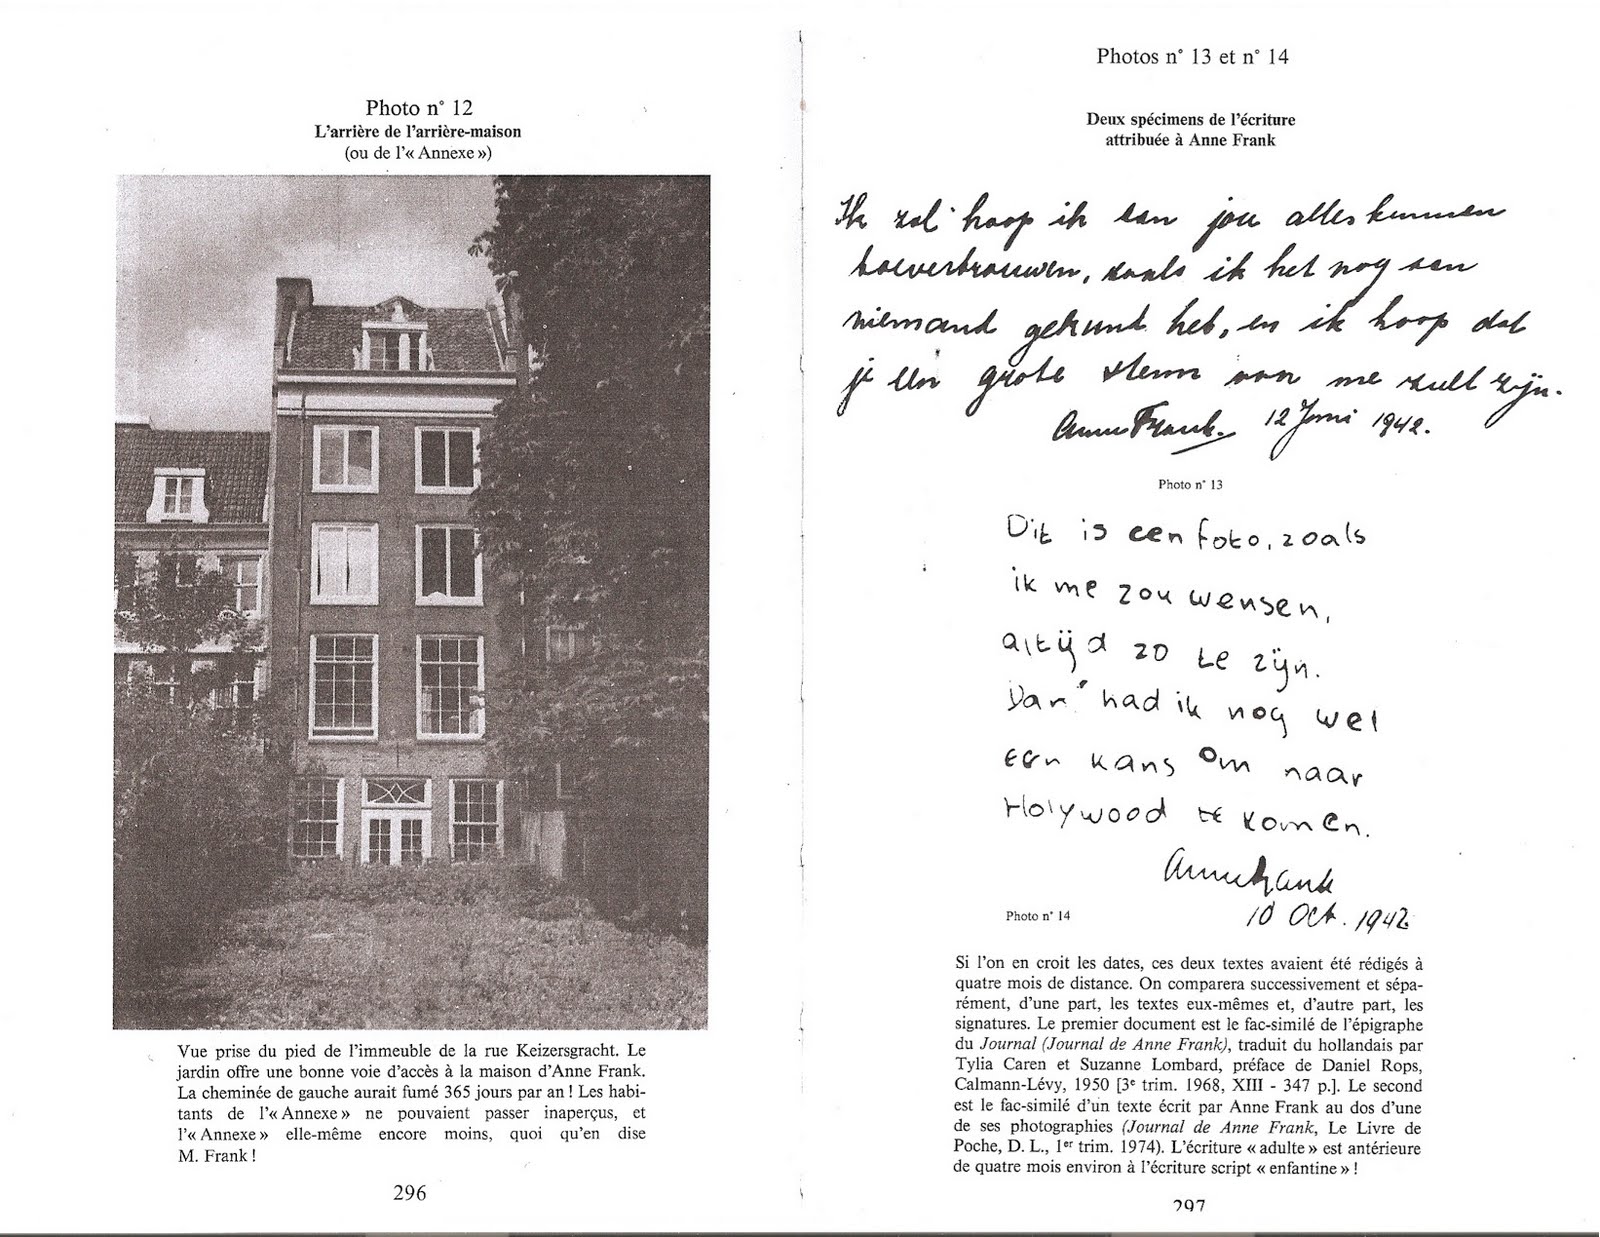 Photo n° 12
L'arrière de l'arrière-maison
(ou de l'« Annexe »)
Vue prise du pied de l'immeuble de la rue Keizersgracht. Le
jardin offre une bonne voie d'accès à la maison d'Anne Frank.
La cheminée de gauche aurait fumé 365 jours par an ! Les habi-
tants de l'« Annexe » ne pouvaient passer inaperçus, et
l'« Annexe » elle-même encore moins, quoi qu'en dise
M. Frank !
296
Photos n° 13 et n° 14
Deux spécimens de l'écriture
attribuée à Anne Frank
Ik zal hoop ik aan jou alles kunnen
toevertrouwen, zoals ik het nog aan
niemand gekund heb, en ik hoop dat
je een grote steun van me zult zijn.
Anne Frank. 12 Juni 1942.
Photo n° 13
Dit is een foto, zoals
ik me zou wensen,
altijd zo te zijn.
Dan had ik nog wel
een kans om naar
Holywood te komen.
Anne Frank
10 Oct. 1942
Photo n° 14
Si l'on en croit les dates, ces deux textes avaient été rédigés à
quatre mois de distance. On comparera successivement et sépa-
rément, d'une part, les textes eux-mêmes et, d'autre part, les
signatures. Le premier document est le fac-similé de l'épigraphe
du Journal (Journal de Anne Frank), traduit du hollandais par
Tylia Caren et Suzanne Lombard, préface de Daniel Rops,
Calmann-Lévy, 1950 [3e trim. 1968, XIII - 347 p.]. Le second
est le fac-similé d'un texte écrit par Anne Frank au dos d'une
de ses photographies (Journal de Anne Frank, Le Livre de
Poche, D. L., 1er trim. 1974). L'écriture « adulte » est antérieure
de quatre mois environ à l'écriture script « enfantine » !
297